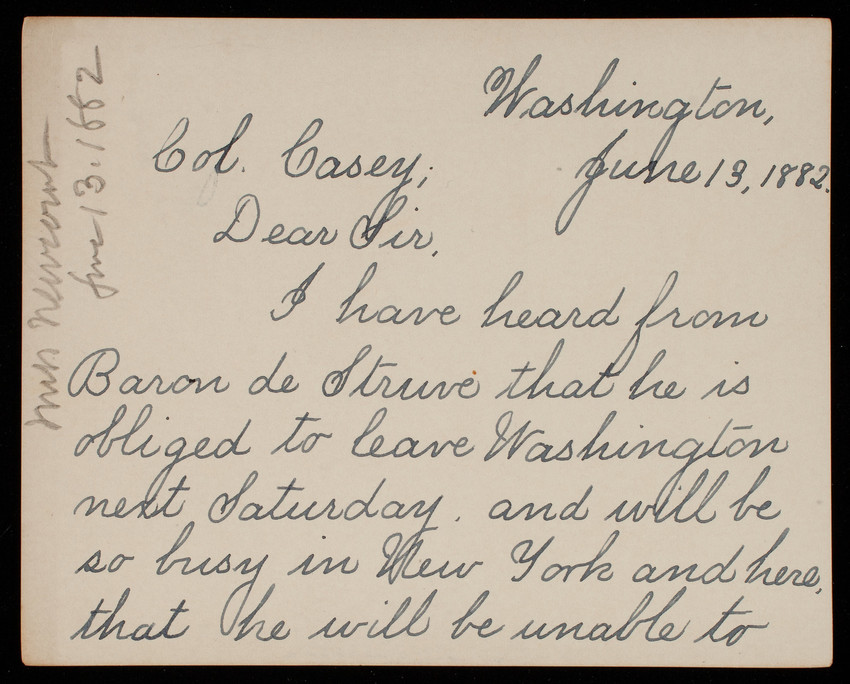 Washington,
Col. Casey, June 13, 1882.
Dear Sir,
I have heard from
Baron de Struve that he is
obliged to leave Washington
next Saturday, and will be
so busy in New York and here,
that he will be unable to
June 13. 1882